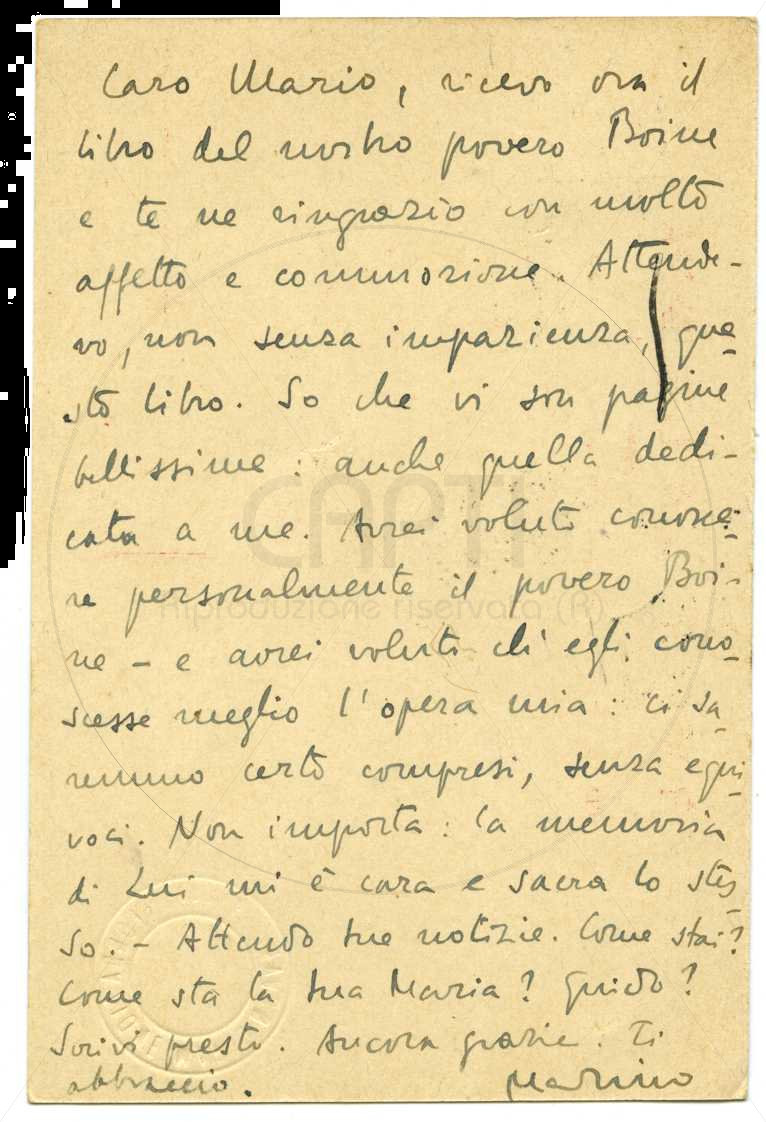 Caro Mario, ricevo ora il
libro del nostro povero Boine
e te ne ringrazio con molto
affetto e commozione. Attende-
vo, non senza impazienza, que-
sto libro. So che vi son pagine
bellissime: anche quella dedi-
cata a me. Avrei voluto conosce-
re personalmente il povero Boi-
ne - e avrei voluto ch'egli cono-
scesse meglio l'opera mia: ci sa-
remmo certo compresi, senza equi-
voci. Non importa: la memoria
di Lui mi è cara e sacra lo stes-
so. - Attendo tue notizie. Come stai?
Come sta la tua Maria? Guido?
Scrivi presto. Ancora grazie. Ti
abbraccio. Marino
CAPTI
Riproduzione riservata (R)